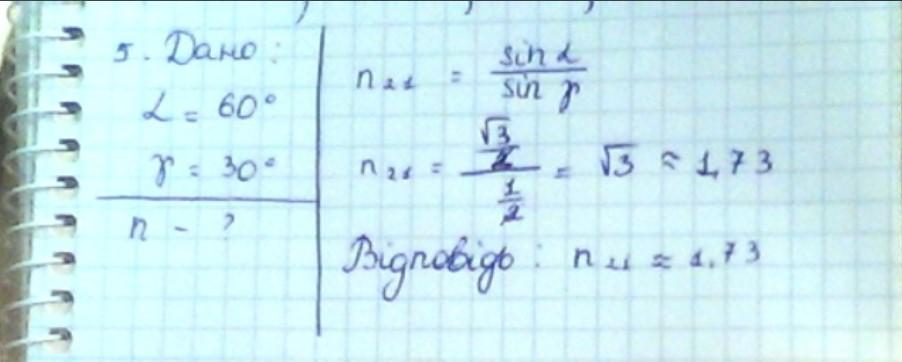 5. Дано:
α = 60°
γ = 30°
n - ?
n₂₁ = sin α / sin γ
n₂₁ = (√3/2) / (1/2) = √3 ≈ 1,73
Відповідь: n₂₁ ≈ 1,73